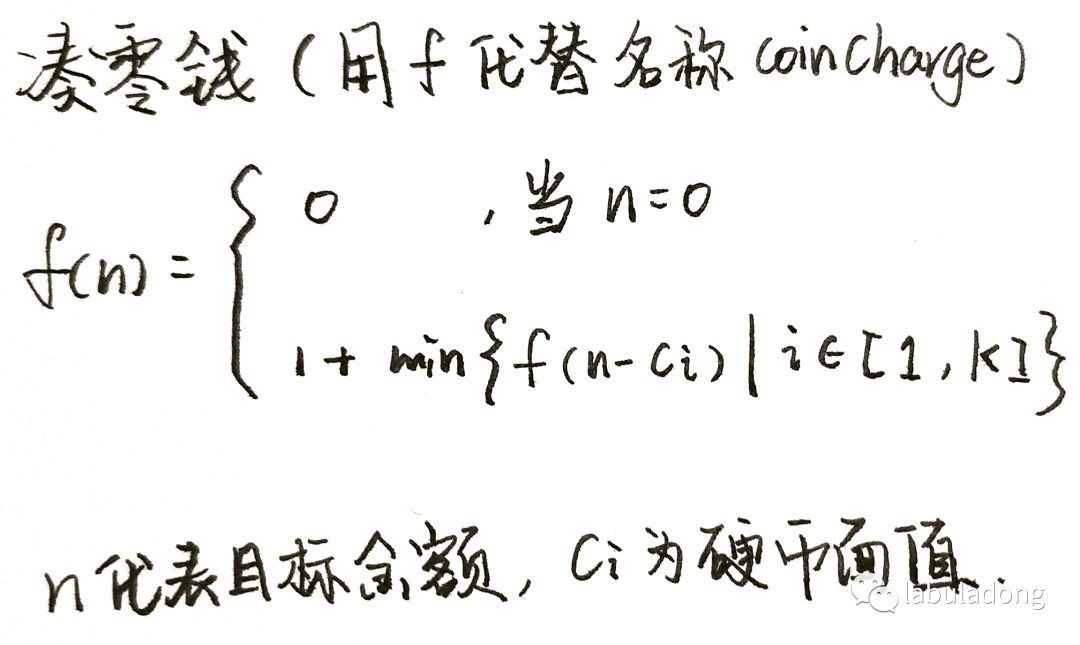 凑零钱（用f代替名称 coinCharge）
f(n) = { 0 , 当 n=0
1 + min{f(n-Ci) | i∈[1,k]}
n代表目标金额, Ci为硬币面值.
labuladong